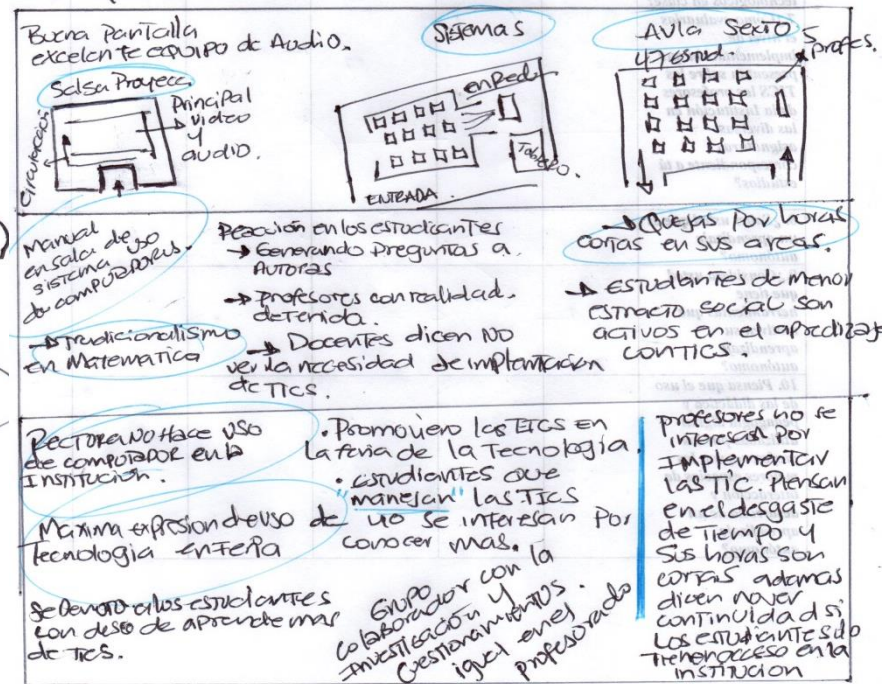 Buena Pantalla
excelente equipo de Audio.
Salsa Proyecc.
Circulación
Principal
video
y
audio.
Sistemas
en Red
Tablero.
ENTRADA.
Aula Sexto
47 estud.
5
profes.
Manual
en sala de uso
sistema
de computadores.
Tradicionalismo
en Matematica
Reacción en los estudiantes
Generando Preguntas a
Autoras
profesores con realidad
detenida.
Docentes dicen NO
ver la necesidad de implantación
de TICS.
Quejas por horas
cortas en sus areas.
Estudiantes de menor
estracto social son
activos en el aprendizaje
con TICS.
Rectora NO Hace USO
de computador en la
Institución.
Maxima expresion de uso de
Tecnologia en Feria
se Denota a los estudiantes
con deseo de aprende mas
de TICS.
. Promoviero las TICS en
la feria de la Tecnologia.
. estudiantes que
"manejan" las TICS
no se interesan por
conocer mas.
Grupo
colaborador con la
Investigación y
Cuestionamientos.
igual en el
profesorado
profesores no se
interesan por
Implementar
las TIC. Piensan
en el desgaste
de Tiempo y
Sus horas son
cortas ademas
dicen no ver
continuidad si
Los estudiantes solo
Tienen acceso en la
institucion